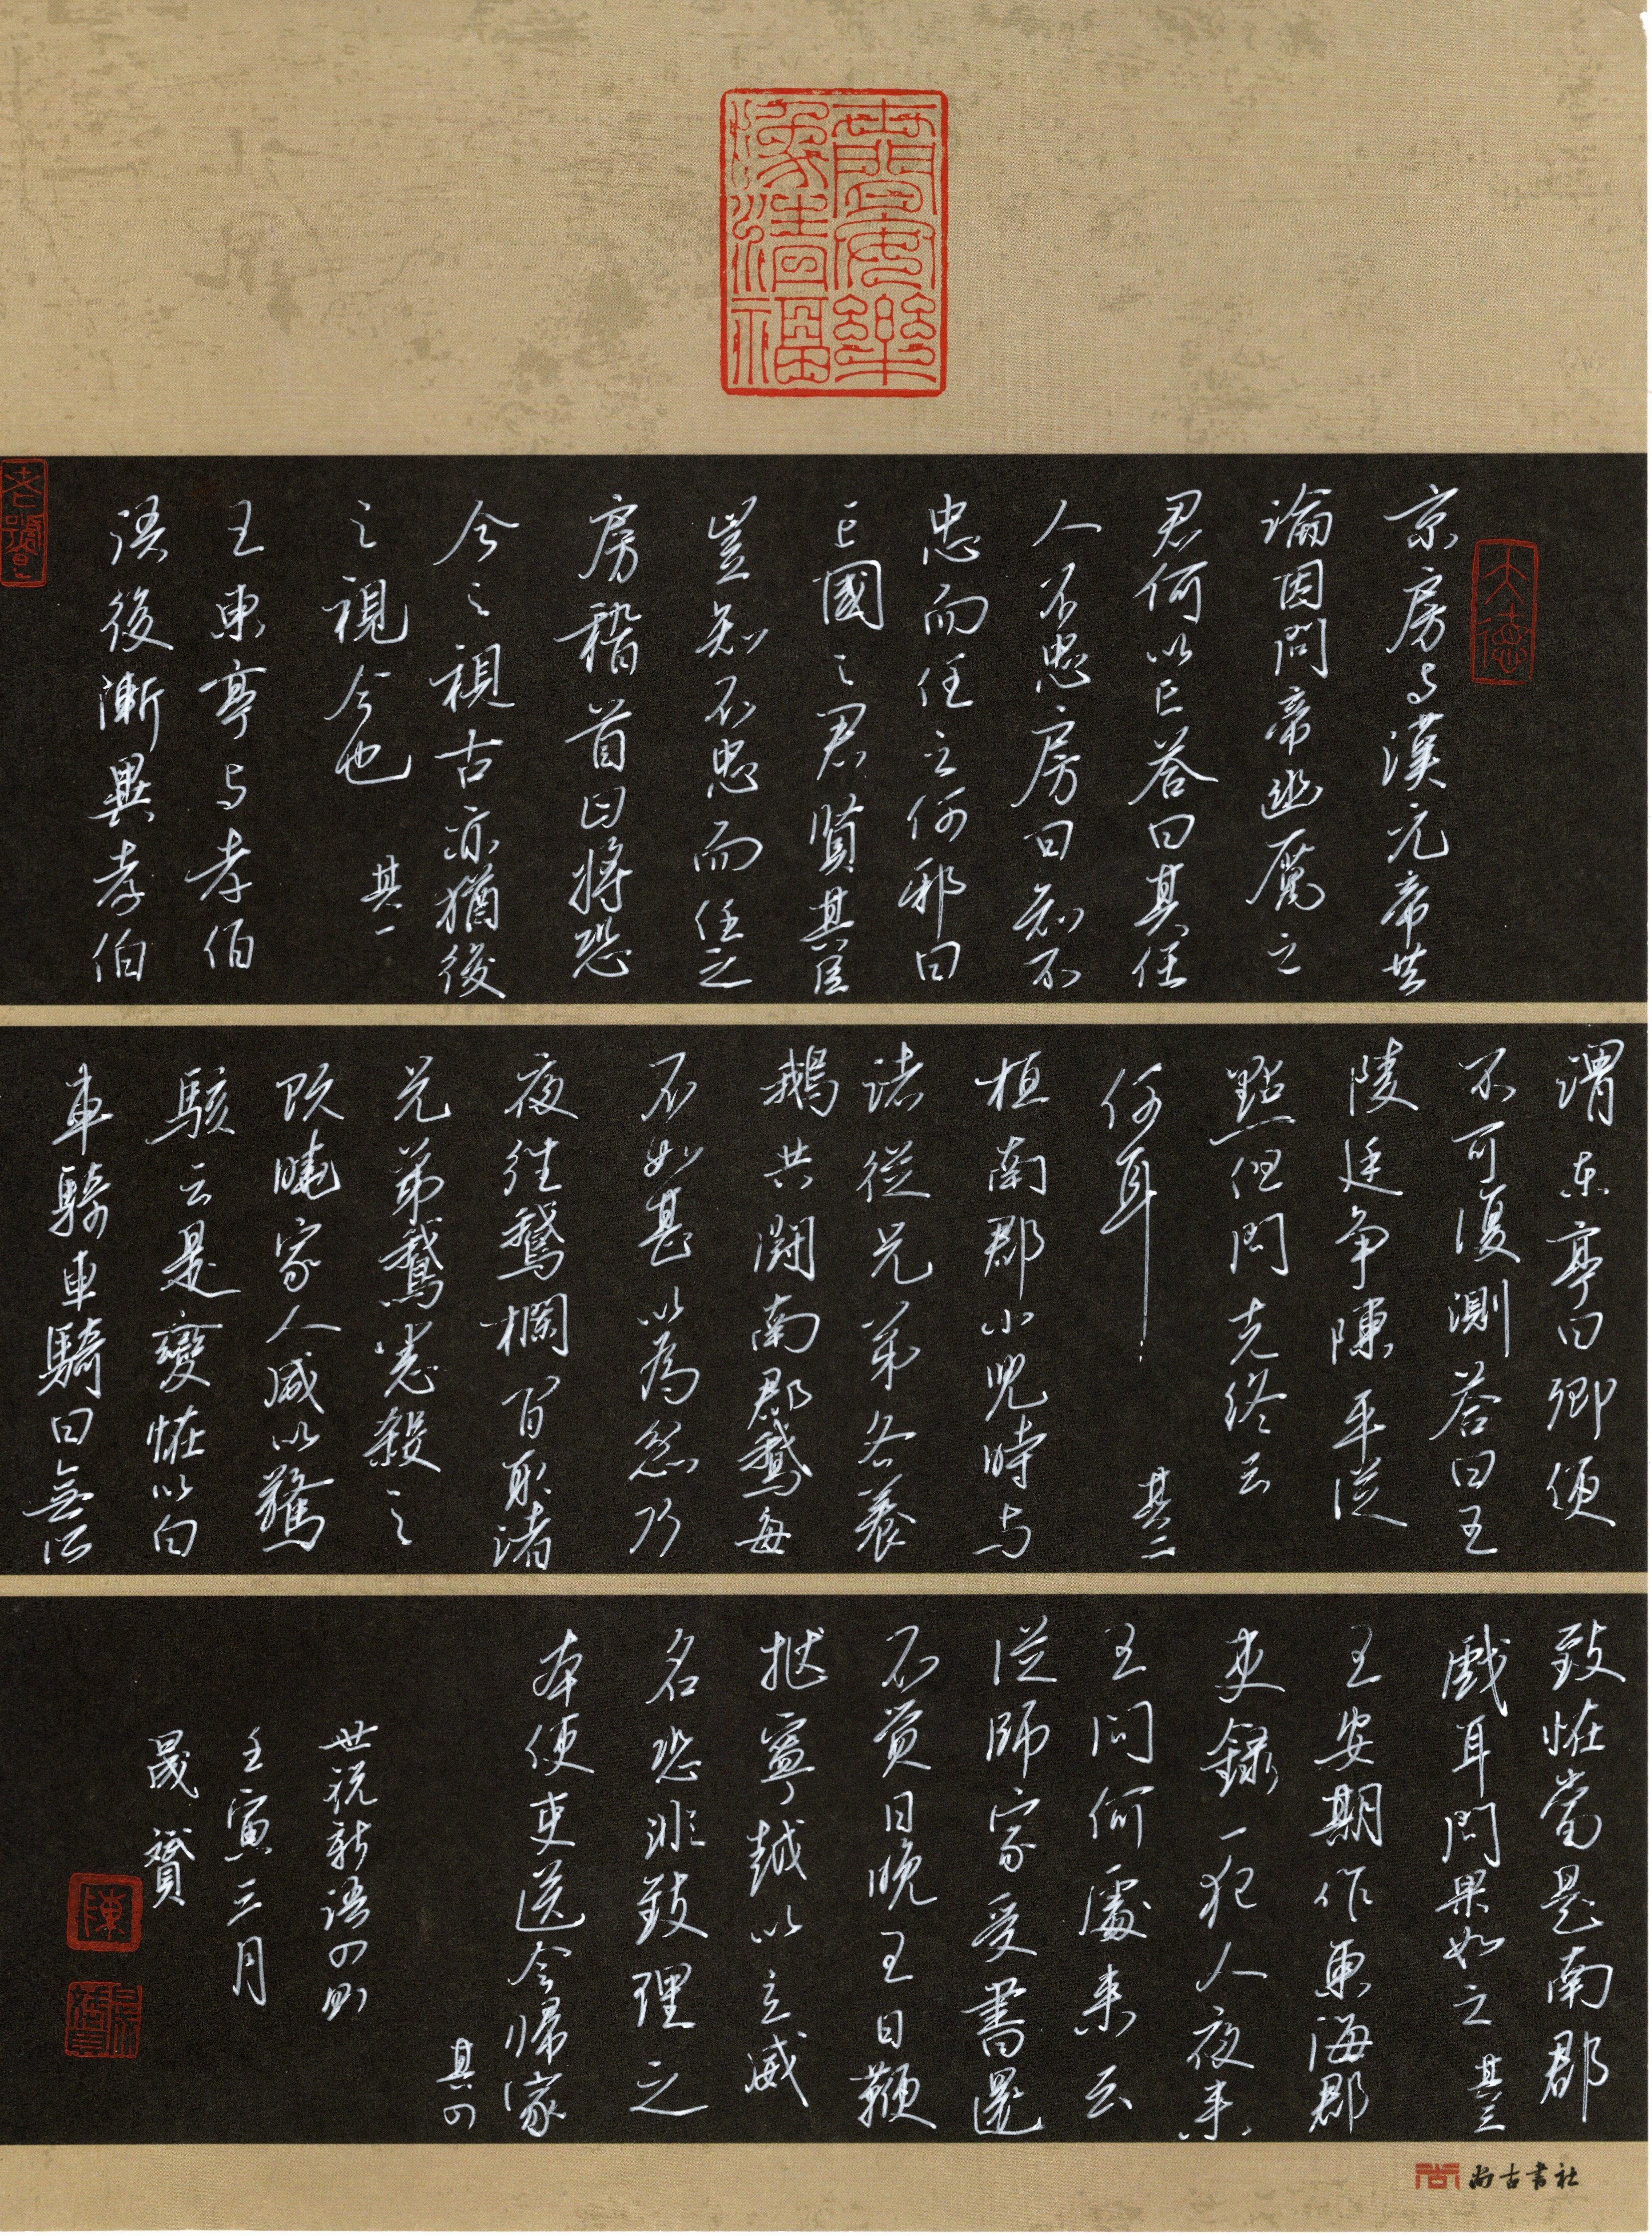 京房与漢元帝共
論因問帝幽厲之
君何以亡答曰其任
人不忠房曰知不
忠而任之何邪曰
亡國之君賢其臣
豈知不忠而任之
房稽首曰將恐
今之視古亦猶後
之視今也
其一
王東亭与孝伯
語後漸異孝伯
謂東亭曰卿便
不可復測答曰王
陵廷争陳平從
默但問克終云
何耳
其二
桓南郡小兒時与
諸從兄弟各養
鵝共鬭南郡鵝每
不如甚以為忿乃
夜往鵝欄間取諸
兄弟鵝悉殺之
既曉家人咸以驚
駭云是變怪以白
車騎車騎曰無所
致怪當是南郡
戲耳問果如之
其三
王安期作東海郡
吏録一犯人夜来
王問何處来云
從師家受書還
不覺日晚王曰鞭
撻寧越以立威
名恐非致理之
本便吏送令帰家
其四
世説新語四則
壬寅三月
晟贇
陳
尚古書社